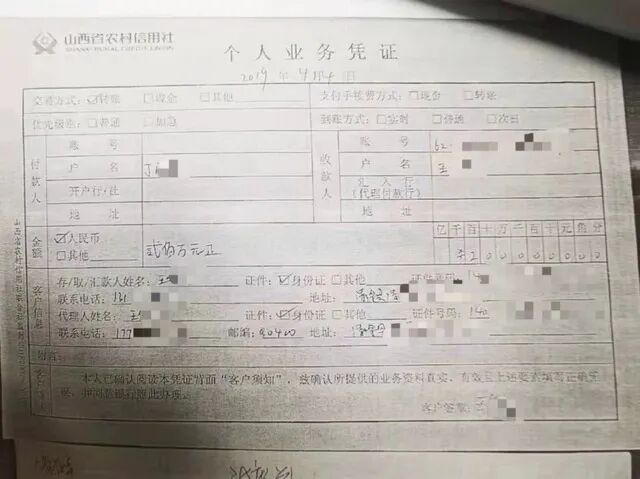 山西省农村信用社
SHANXI RURAL CREDIT UNION
个人业务凭证
2019年4月4日
交易方式：☑转账 □现金 □其他 支付手续费方式：□现金 □转账
优先级别：□普通 □加急 到账方式：□实时 □普通 □次日
付款人
账号
户名 丁
开户行/社
地址
收款人
账号 62
户名 王
汇入行
(代理付款行)
地址
金额
☑人民币
□其他
贰佰万元正
亿千百十万千百十元角分
2 0 0 0 0 0 0 0 0
客户信息
存/取/汇款人姓名： 证件：☑身份证 □其他 证件号码：14
联系电话：131 地址：
代理人姓名：王 证件：☑身份证 □其他 证件号码：140
联系电话：177 邮编： 地址：
附言：
本人已确认阅读本凭证背面“客户须知”，兹确认所提供的业务资料真实、有效且上述要素填写正确无
误，并同意银行照此办理。
客户签章：
山西省农村信用社